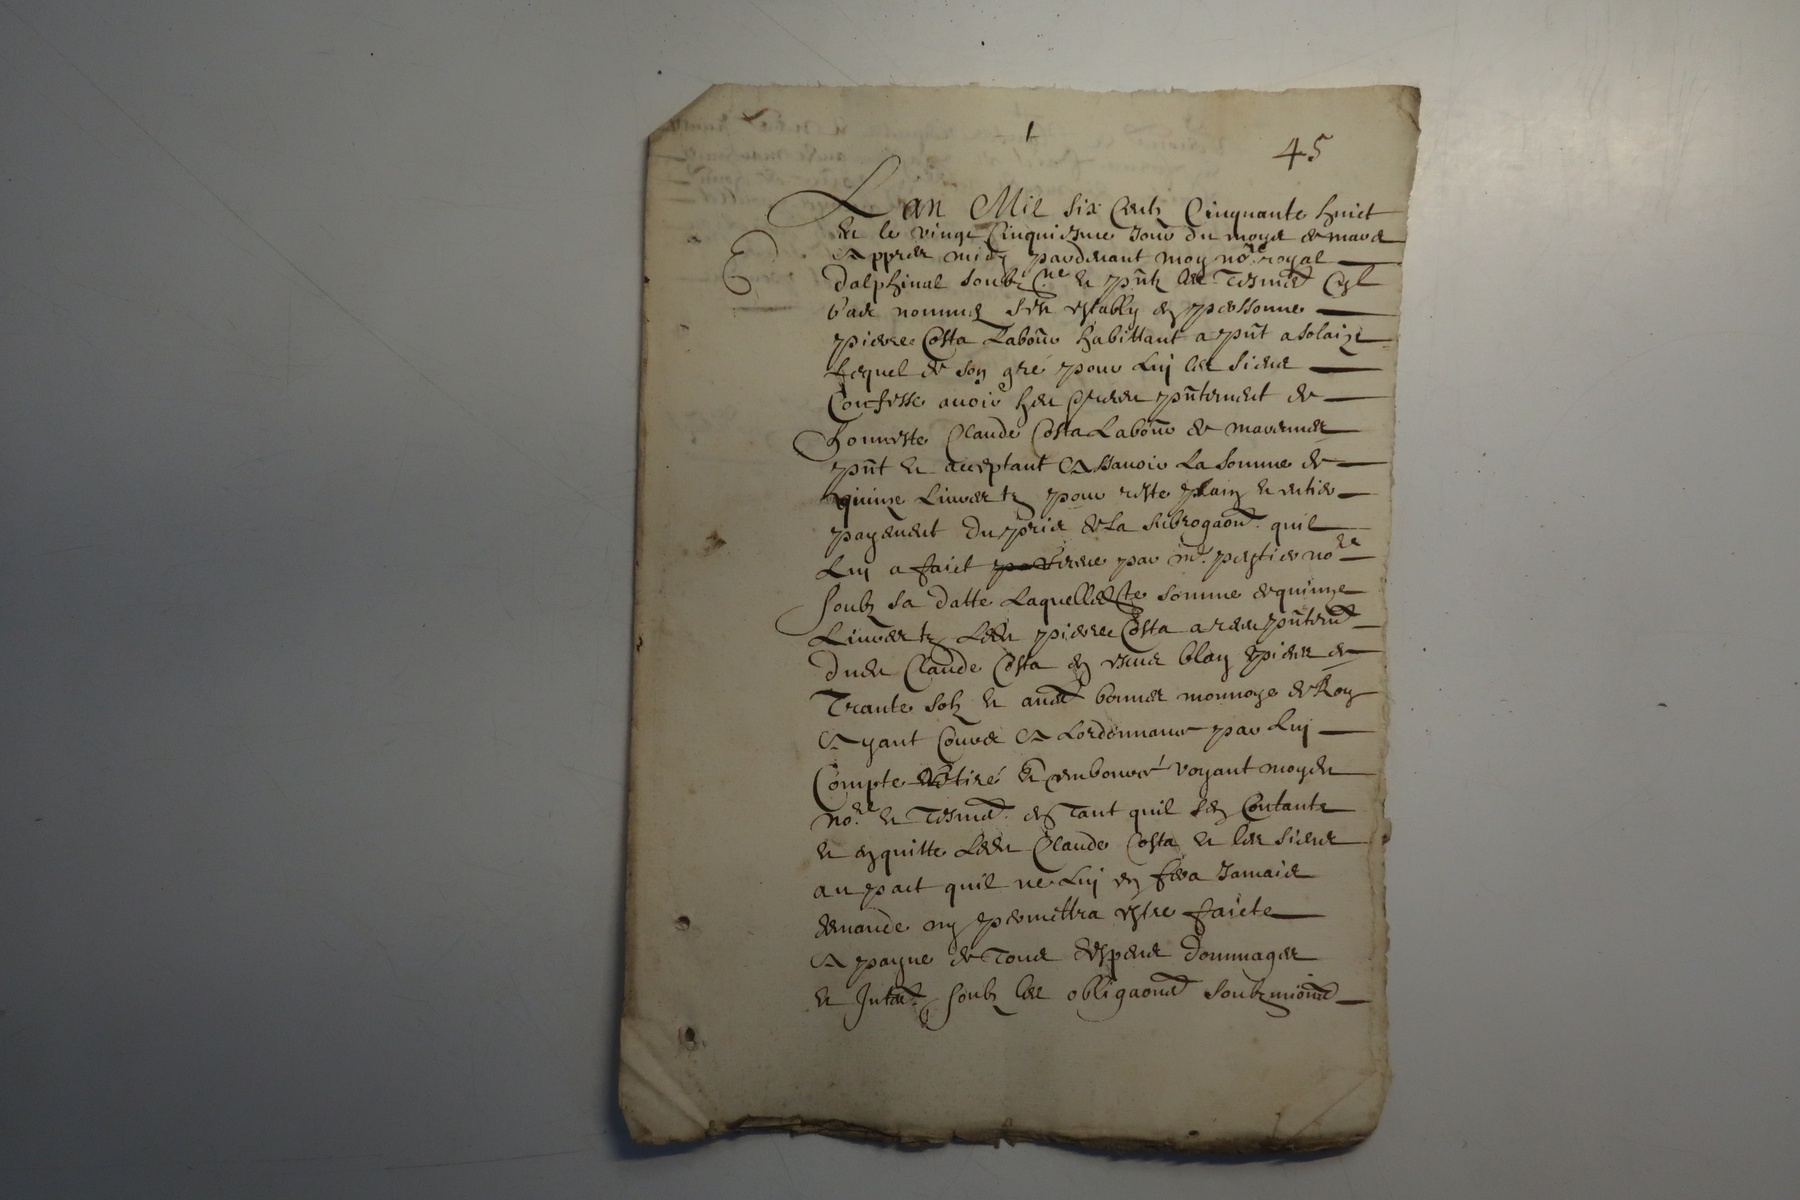 1
45
L an Mil six Centz Cinquante huict
Et le vingt Cinquiesme Jour du moys de mars
Appres midy pardevant moy no.re royal
dalphinal soubz.ne et pñtz les tesmes
bas nommes s'est estably en personne
pierre Costa Labour habittant a pñt a solaize
Lequel de son gré pour Luy les siens
Confesse avoir heu pñtement de
honneste Claude Costa Labour de marennes
pñt et acceptant Assavoir La somme de
quinze Livres tz pour reste plain et entier
payement du pris de La subrogaon quil
Luy a faict par m.e no.re
soubz sa datte Laquelle somme de quinze
Livres tz Led pierre Costa a pñtemt
dud Claude Costa en escus blan pieces de
Trante solz et aues bonnes monnoye de Roy
Ayant Cours A Lordonnance par Luy
Compte retiré Et embourcé voyant moyd
no.re et Tesmes. en Tant quil sen Contante
et en quitte Led Claude Costa et les siens
au pact quil ne Luy en fera Jamais
demande ny permettra estre faicte
A payne de Tous despens dommages
et Intes. soubz les obligaons soubzmions